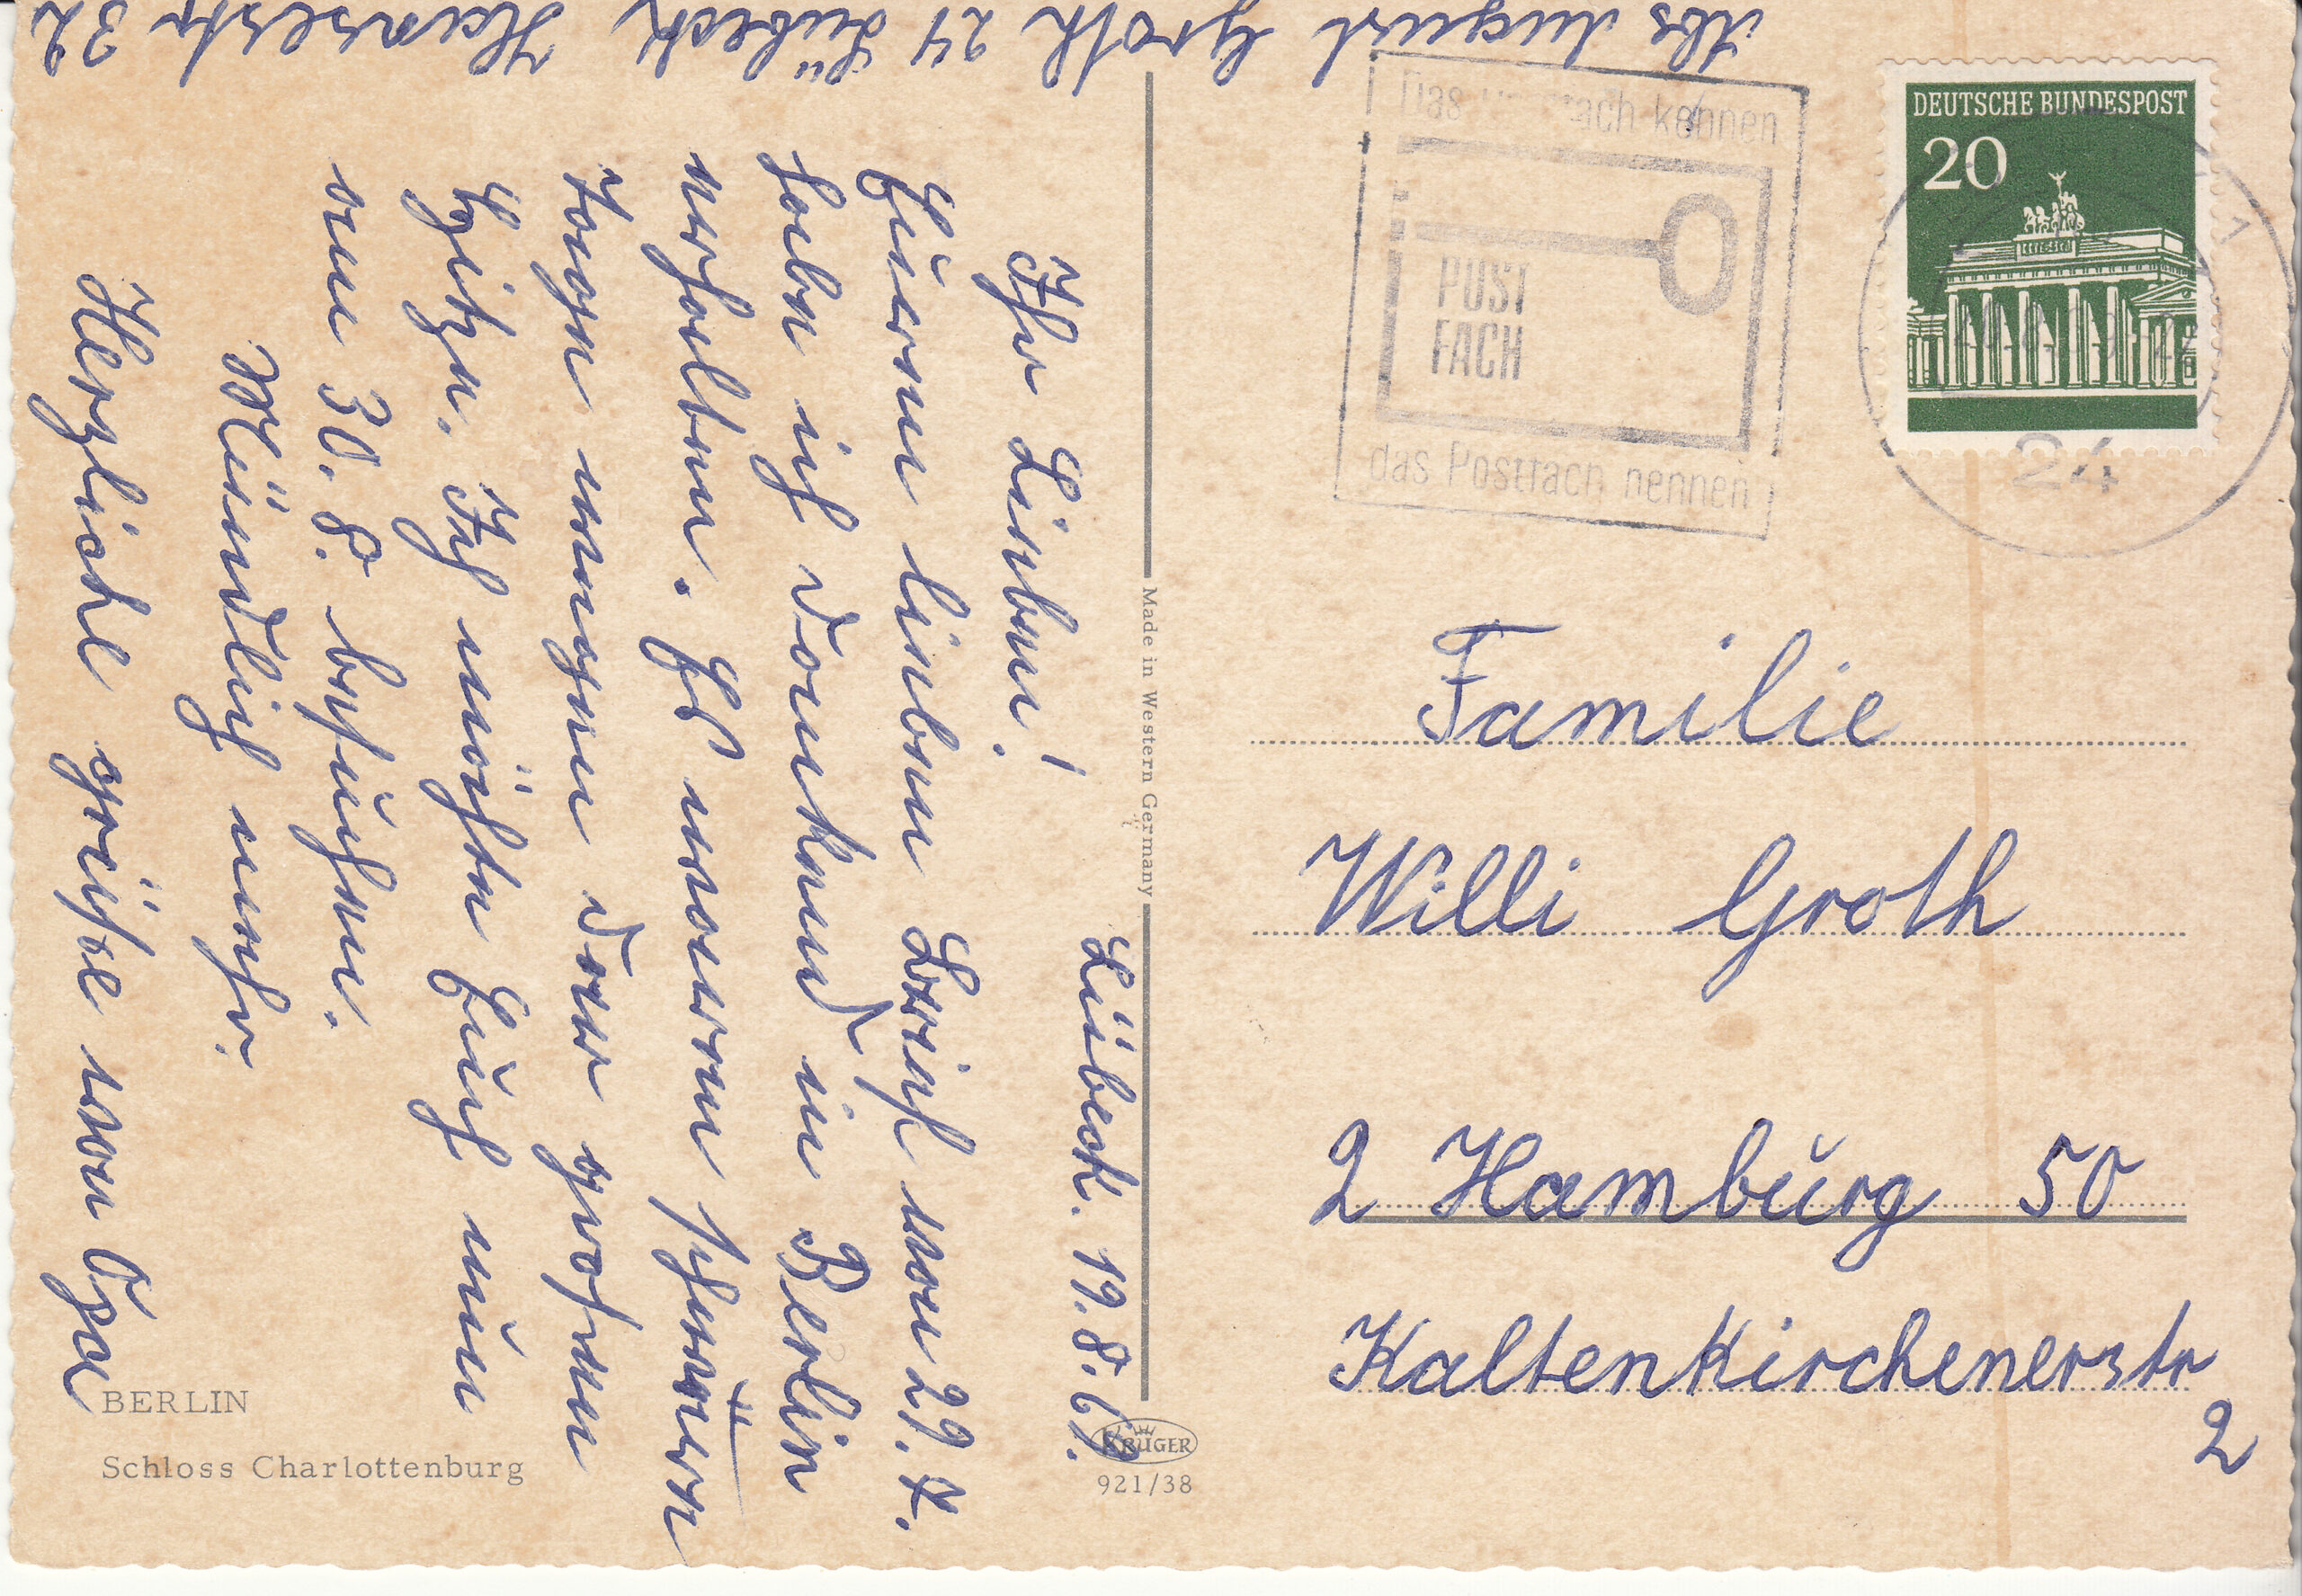 Abs August Groth 24 Lübeck Hansestr 32
Lübeck. 19.8.69.
Ihr Lieben!
Euren lieben Brief vom 29.7.
habe ich dankend in Berlin
erhalten. Es waren
Tage wegen der großen
Hitze. Ich möchte Euch nun
am 30.8. besuchen.
Mündlich mehr.
Herzliche grüße von Opa
BERLIN
Schloss Charlottenburg
Made in Western Germany
KRÜGER
921/38
Das Postfach kennen
POST
FACH
das Postfach nennen
DEUTSCHE BUNDESPOST
20
24
Familie
Willi Groth
2 Hamburg 50
Kaltenkirchenerstr
2